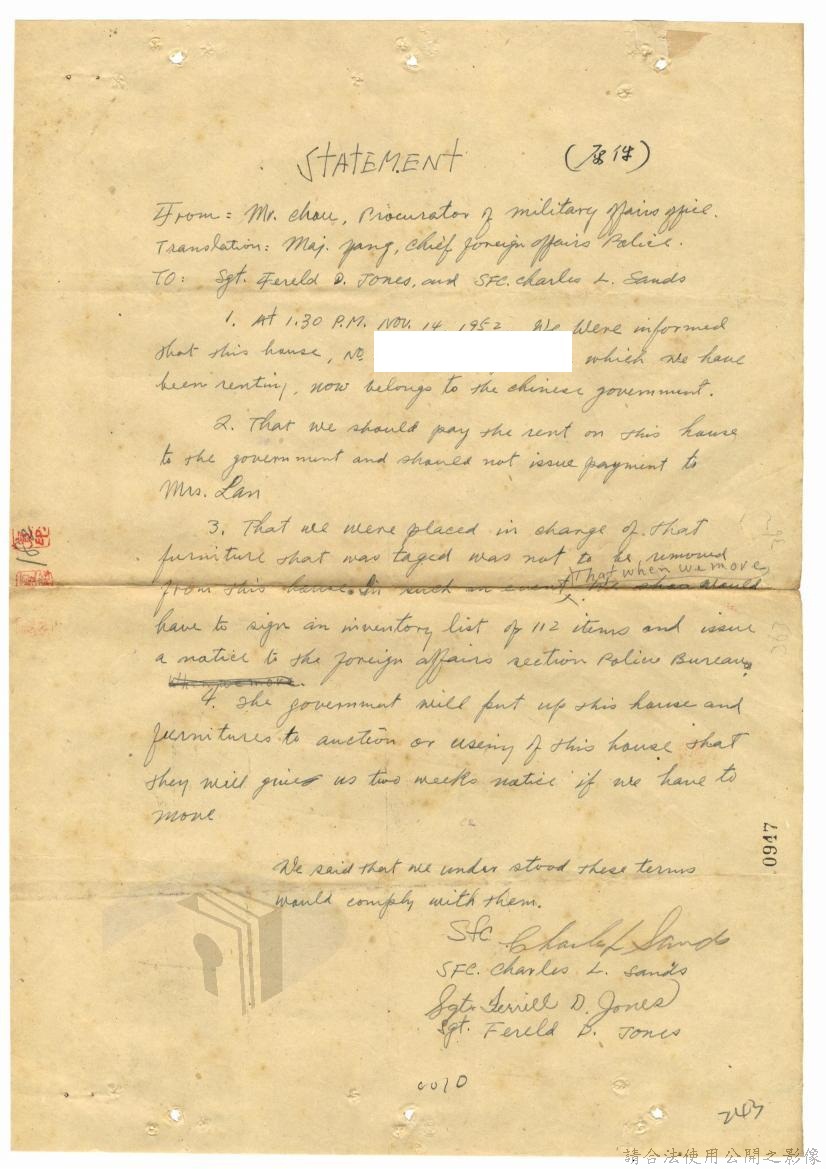 STATEMENT (原件)
From: Mr. chou, Procurator of military affairs office.
Translation: Maj. yang, chief foreign affairs Police.
TO: Sgt. Fereld D. Jones, and SFC. Charles L. Sands
1. At 1.30 P.M. NOV. 14, 1952 We Were informed
that this house, No. which we have
been renting, now belongs to the chinese government.
2. That we should pay the rent on this house
to the government and should not issue payment to
Mrs. Lan
3. That we were placed in change of that
furniture that was taged was not to be removed
That when we move,
from this house. In such an event would
have to sign an inventory list of 112 items and issue
a notice to the foreign affairs section Police Bureau.
when we move.
4. the government will put up this house and
furnitures to auction or useing of this house that
they will give us two weeks notice if we have to
move
We said that we under stood these terms
would comply with them.
Sfc Charles L Sands
SFC. Charles L. Sands
Sgt. Ferrill D. Jones
Sgt. Fereld D. Jones
0947
0010
243
請合法使用公開之影像